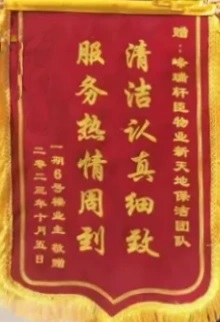 赠：峰璟轩臣物业新天地保洁团队
清洁认真细致
服务热情周到
一期6号楼业主 敬赠
二零二三年十月五日